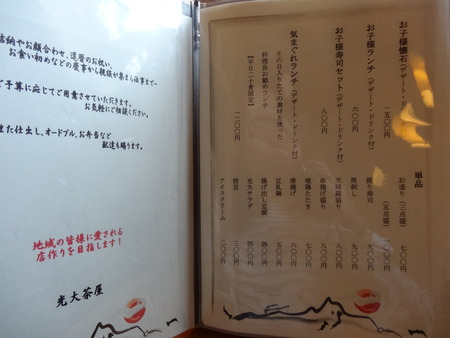 結納やお顔合わせ、還暦のお祝い、
お食い初めなどの慶事から親族が集まる法事まで…
ご予算に応じてご用意させていただきます。
お気軽にご相談ください。
また仕出し、オードブル、お弁当など
配達も賜ります。
地域の皆様に愛される
店作りを目指します!
光大茶屋
お子様懐石(デザート・ドリンク付)
一五〇〇円
お子様ランチ(デザート・ドリンク付)
六〇〇円
お子様寿司セット(デザート・ドリンク付)
八〇〇円
気まぐれランチ(デザート・ドリンク付)
その日入りたての食材を使った
料理長お勧めランチ
【平日二十食限定】
一二〇〇円
単品
お造り(三点盛)
七〇〇円
(五点盛)
握り寿司
九〇〇円
馬刺し
天婦羅盛り
八〇〇円
串揚げ盛り
地鶏たたき
唐揚げ
豆乳鍋
揚げ出し豆腐
四〇〇円
光大サラダ
五〇〇円
枝豆
三〇〇円
アイスクリーム
二〇〇円